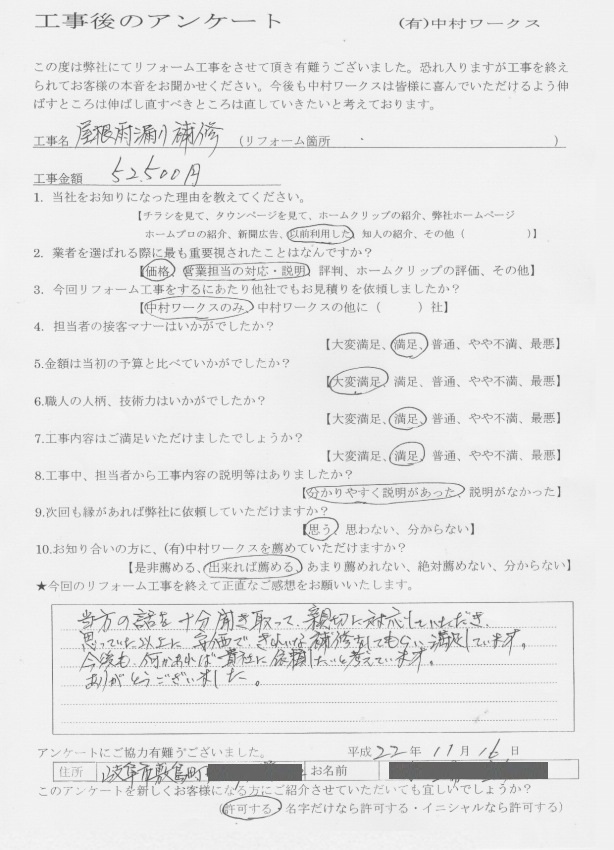 工事後のアンケート (有)中村ワークス
この度は弊社にてリフォーム工事をさせて頂き有難うございました。恐れ入りますが工事を終え
られてお客様の本音をお聞かせください。今後も中村ワークスは皆様に喜んでいただけるよう伸
ばすところは伸ばし直すべきところは直していきたいと考えております。
工事名 屋根雨漏り補修 (リフォーム箇所 )
工事金額 52,500円
1. 当社をお知りになった理由を教えてください。
【チラシを見て、タウンページを見て、ホームクリップの紹介、弊社ホームページ
ホームプロの紹介、新聞広告、以前利用した、知人の紹介、その他（ ）】
2. 業者を選ばれる際に最も重要視されたことはなんですか？
【価格、営業担当の対応・説明、評判、ホームクリップの評価、その他】
3. 今回リフォーム工事をするにあたり他社でもお見積りを依頼しましたか？
【中村ワークスのみ、中村ワークスの他に（ ）社】
4. 担当者の接客マナーはいかがでしたか？
【大変満足、満足、普通、やや不満、最悪】
5.金額は当初の予算と比べていかがでしたか？
【大変満足、満足、普通、やや不満、最悪】
6.職人の人柄、技術力はいかがでしたか？
【大変満足、満足、普通、やや不満、最悪】
7.工事内容はご満足いただけましたでしょうか？
【大変満足、満足、普通、やや不満、最悪】
8.工事中、担当者から工事内容の説明等はありましたか？
【分かりやすく説明があった、説明がなかった】
9.次回も縁があれば弊社に依頼していただけますか？
【思う、思わない、分からない】
10.お知り合いの方に、(有)中村ワークスを薦めていただけますか？
【是非薦める、出来れば薦める、あまり薦めれない、絶対薦めない、分からない】
★今回のリフォーム工事を終えて正直なご感想をお願いいたします。
当方の話を十分聞き取って、親切に対応していただき、
思っていた以上に安価で、きれいな補修をしてもらい満足しています。
今後も、何かあれば貴社に依頼したいと考えています。
ありがとうございました。
アンケートにご協力有難うございました。 平成 22 年 11 月 16 日
住所 岐阜市敷島町 お名前
このアンケートを新しくお客様になる方にご紹介させていただいても宜しいでしょうか？
（許可する・名字だけなら許可する・イニシャルなら許可する）